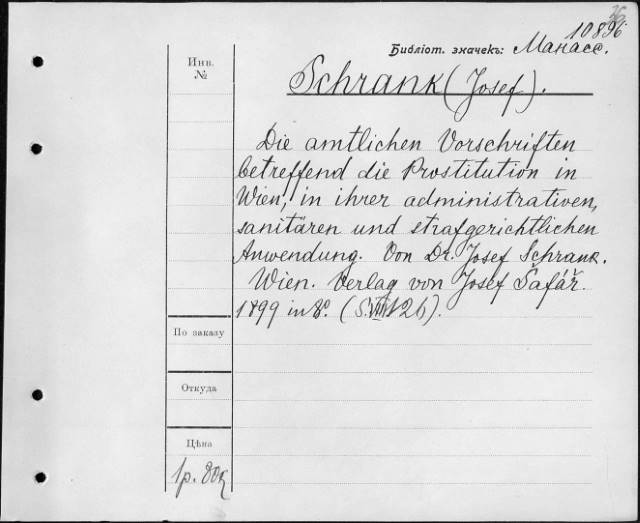 36
10896
Библіот. значекъ: Манасс.
Инв.
№
Schrank (Josef).
Die amtlichen Vorschriften
betreffend die Prostitution in
Wien, in ihrer administrativen,
sanitären und strafgerichtlichen
Anwendung. Von Dr. Josef Schrank.
Wien. Verlag von Josef Šafář.
1899 in 8º. (S. VIII, 126).
По заказу
Откуда
Цѣна
1р. 80к